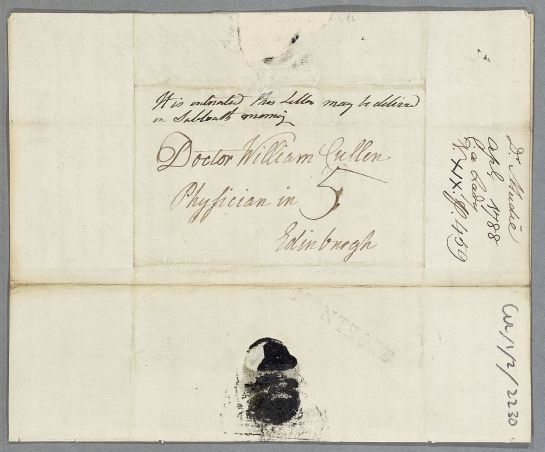 It is entreated this Letter may be delivred
on Sabbath morning
Doctor William Cullen
Physician in 5
Edinburgh
Dr. Mudie
April 1788
C a Lady
V. XIX. p. 459
MONTROSE
CUL/1/2/2230